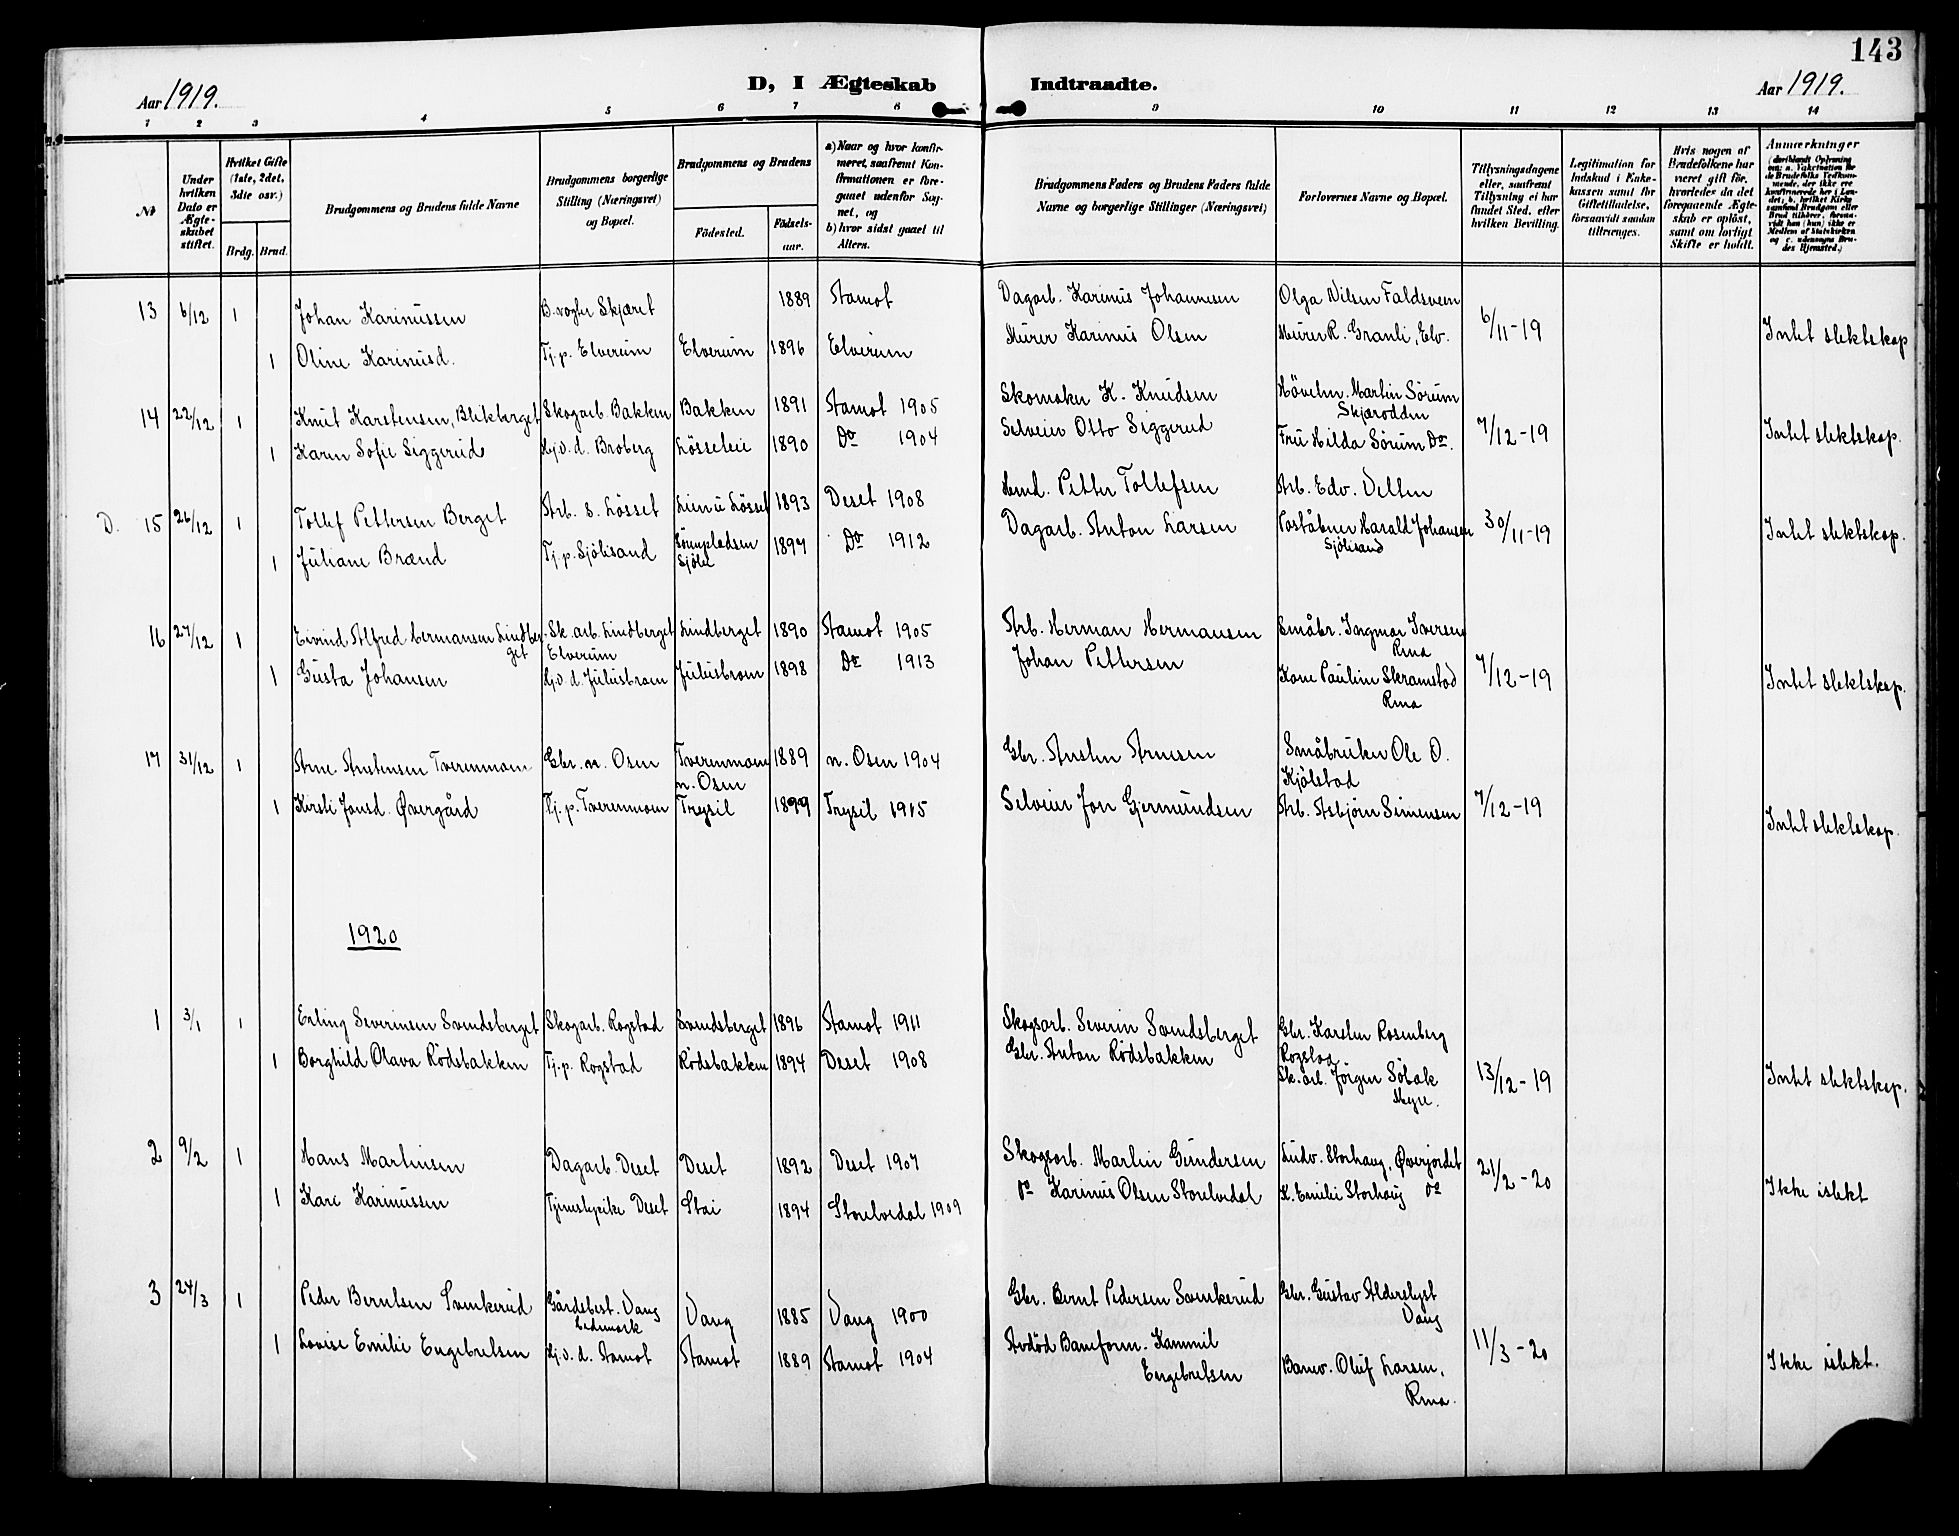 143
Aar 1919. D, I Ægteskab Indtraadte. Aar 1919.
1 2 3 4 5 6 7 8 9 10 11 12 13 14
№
Under hvilken Dato er Ægteskabet stiftet.
Hvilket Gifte (1ste, 2det, 3die osv.)
Brdg. Brud.
Brudgommens og Brudens fulde Navne
Brudgommens borgerlige Stilling (Næringsvei) og Bopæl.
Brudgommens og Brudens
Födested. Födsels-aar.
a) Naar og hvor konfirmeret, saafremt Konfirmationen er foregaaet udenfor Sognet, og
b) hvor sidst gaaet til Alters.
Brudgommens Faders og Brudens Faders fulde Navne og borgerlige Stillinger (Næringsvei)
Forlovernes Navne og Bopæl.
Tillysningsdagene eller, saafremt Tillysning ei har fundet Sted, efter hvilken Bevilling.
Legitimation for Indskud i Enkekassen samt for Giftetilladelse, forsaavidt saadan tiltrænges.
Hvis nogen af Brudefolkene har været gift før, hvorledes da det foregaaende Ægteskab er oplöst, samt om lovligt Skifte er holdt.
Anmærkninger
13 6/12 1 Johan Karinussen B.vogter Skjæret 1889 Stamot Dagarb. Karinus Johannesen Olga Nilsen Faldsveen 6/11-19
1 Oline Karinusd. Tj.p. Elverum Elverum 1896 Elverum Murer Karinus Olsen Murer R. Granli, Elv. Intet slektskap
14 22/12 1 Knut Karstensen, Blikberget Skogarb. Bakken Bakken 1891 Stamot 1905 Skomaker K. Knudsen Hövelm. Martin Sörum Skjærodden
1 Karen Sofie Siggerud Hj.v.d. Broberg Lösseteie 1890 Do 1904 Selveier Otto Siggerud Fru Hilda Sörum Do. 7/12-19 Intet slektskap.
D. 15 26/12 1 Tollef Pettersen Berget Arb. s. Lösset Lien u Lösset 1893 Deset 1908 Petter Tollefsen Arb. Edv. Velten
1 Juliane Brænd Tj.p. Sjölisand Sjölie 1897 Do 1912 Dagarb. Anton Larsen Poståbner Harald Johansen Sjölisand 30/11-19 Intet slektskap.
16 27/12 1 Eivind Alfred Hermansen Lindberget Sk.arb. Lindberget Elverum Lindberget 1890 Stamot 1905 Arb. Herman Hermansen Småbr. Ingmar Iversen Rena
1 Gusta Johansen Hj.v.d. Julusbrom Julusbrom 1898 Do 1913 Johan Pettersen Kone Pauline Skramstad Rena 7/12-19 Intet slektskap.
17 31/12 1 Arne Austensen Tverenmoen Gbr. n. Osen Tverenmoen n. Osen 1889 n. Osen 1904 Gbr. Austen Arnesen Småbruker Ole O. Kjölstad
1 Kirsti Jonsd. Øvergård Tj.p. Tverenmoen Trysil 1899 Trysil 1915 Selveier Jon Gjermundsen Arb. Asbjörn Simensen 7/12-19 Intet slektskap.
1920
1 3/1 1 Erling Severinsen Svendsberget Skogarb. Rogstad Svendsberget 1896 Stamot 1911 Skogsarb. Severin Svendsberget Gbr. Karsten Rosenberg Rogstad
1 Borghild Olava Rödsbakken Tj.p. Rogstad Rödsbakken 1894 Deset 1908 Gbr. Anton Rödsbakken Sk.arb. Jörgen Söbak Myre. 13/12-19 Intet slektskap.
2 9/2 1 Hans Martinsen Dagarb. Deset Deset 1892 Deset 1907 Skogsarb. Martin Gundersen Ludv. Storhaug, Øverjordet 21/2-20
1 Kari Karinussen Tjenestepike Deset Stai 1894 Storelvedal 1909 Do Karinus Olsen Storelvedal K. Emilie Storhaug Do Ikke i slekt
3 24/3 1 Peder Berntsen Svenkerud Gårdsbest. Vang Hedemark Vang 1885 Vang 1900 Gbr. Bernt Pedersen Svenkerud Gbr. Gustav Alderslyst Vang
1 Lovise Emilie Engebretsen Hj.v.d. Stamot Stamot 1889 Stamot 1904 Avdöd Baneform. Kammil Engebretsen Banev. Oluf Larsen, Rena. 11/3-20 Ikke i slekt.